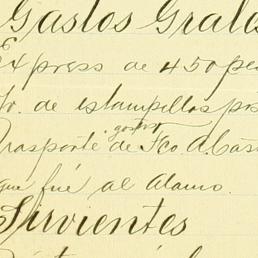 Gastos Grals
Express de 450 pe
Yo. de estampillas pos
gastos
Trasporte de Fco A. Cas
que fué al Alamo.
Sirvientes